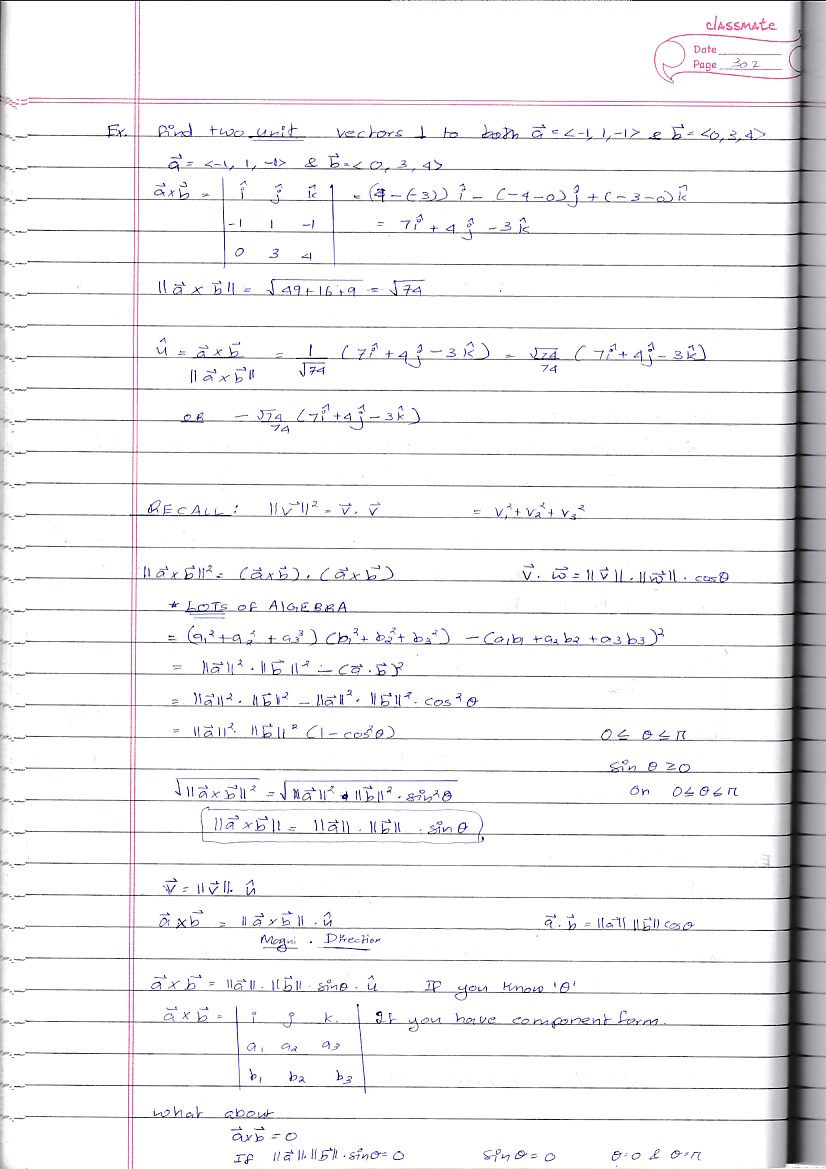 classmate
Date
Page 302
Ex. Find two unit vectors ⊥ to both a⃗ = <-1, 1, -1> & b⃗ = <0, 3, 4>
a⃗ = <-1, 1, -1> & b⃗ = <0, 3, 4>
a⃗xb⃗ = | î ĵ k̂ | = (4-(-3)) î - (-4-0) ĵ + (-3-0) k̂
-1 1 -1 = 7î + 4ĵ - 3k̂
0 3 4
||a⃗ x b⃗|| = √49+16+9 = √74
û = a⃗ x b⃗ / ||a⃗ x b⃗|| = 1/√74 (7î + 4ĵ - 3k̂) = √74/74 (7î + 4ĵ - 3k̂)
OR - √74/74 (7î + 4ĵ - 3k̂)
RECALL: ||v⃗||² = v⃗ . v⃗ = v₁² + v₂² + v₃²
||a⃗ x b⃗||² = (a⃗xb⃗) . (a⃗xb⃗) v⃗ . w⃗ = ||v⃗|| . ||w⃗|| . cosθ
* LOTS OF ALGEBRA
= (a₁² + a₂² + a₃³) (b₁² + b₂² + b₃²) - (a₁b₁ + a₂b₂ + a₃b₃)²
= ||a⃗||² . ||b⃗||² - (a⃗ . b⃗)²
= ||a⃗||² . ||b⃗||² - ||a⃗||² . ||b⃗||² . cos²θ
= ||a⃗||² . ||b⃗||² (1 - cos²θ) 0 ≤ θ ≤ π
sin θ ≥ 0
√||a⃗xb⃗||² = √||a⃗||² . ||b⃗||² . sin²θ on 0 ≤ θ ≤ π
||a⃗ x b⃗|| = ||a⃗|| . ||b⃗|| . sin θ
v⃗ = ||v⃗|| . û
a⃗ x b⃗ = ||a⃗ x b⃗|| . û a⃗ . b⃗ = ||a⃗|| ||b⃗|| cosθ
Magni . Direction
a⃗ x b⃗ = ||a⃗|| . ||b⃗|| . sinθ . û If you know 'θ'
a⃗ x b⃗ = | i j k | If you have component form.
a₁ a₂ a₃
b₁ b₂ b₃
what about
a⃗xb⃗ = 0
If ||a⃗|| . ||b⃗|| . sinθ = 0 sinθ = 0 θ=0 & θ=π